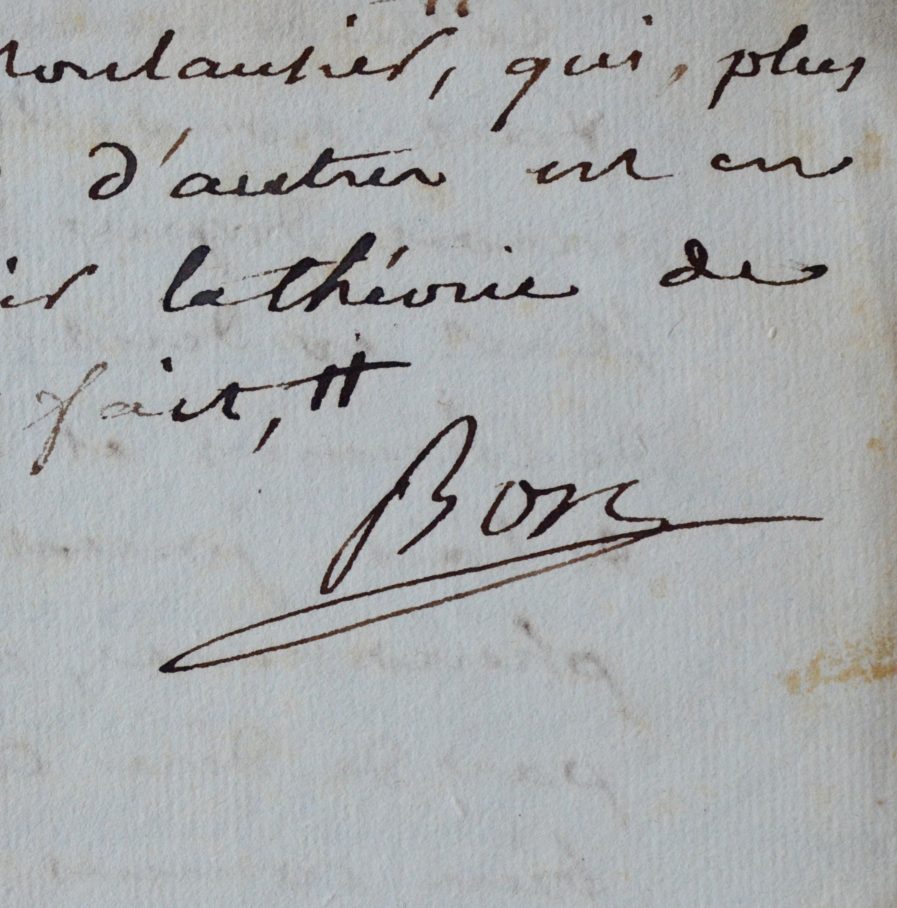 Montausier, qui, plus
d'autres est en
la théorie de
fait, //
Bon